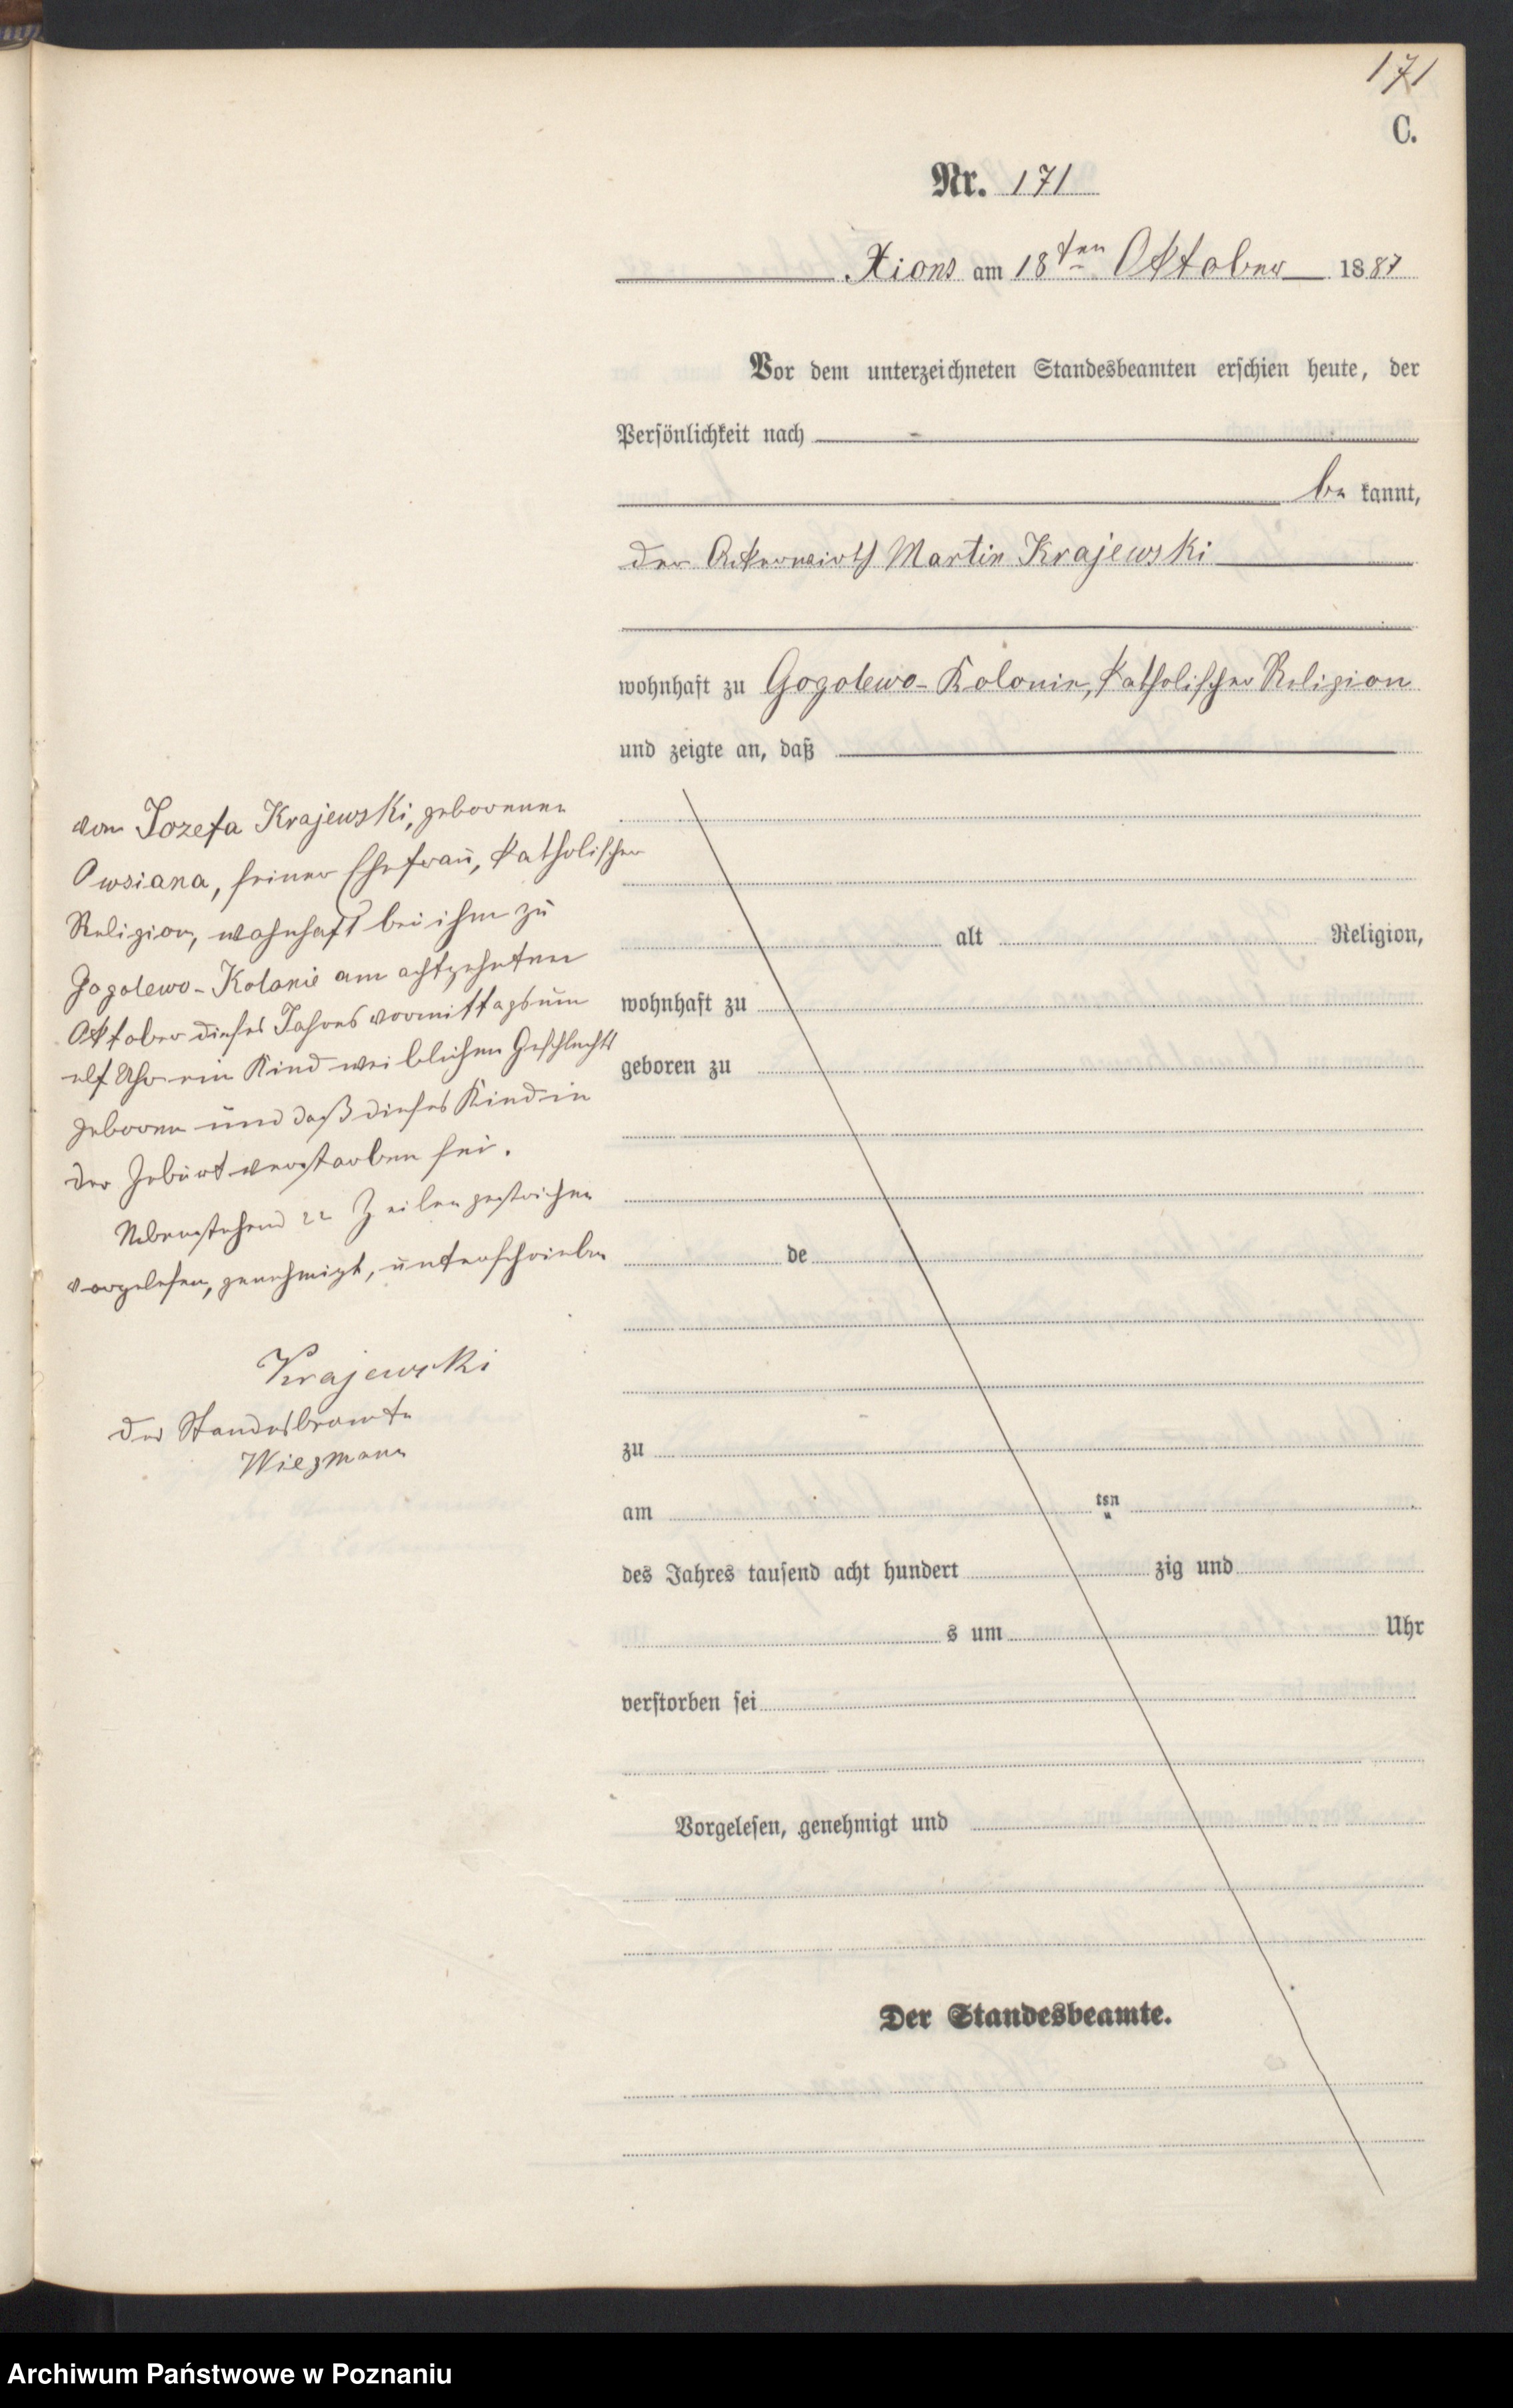 171
C.
Nr. 171
Xions am 18ten Oktober 1887
Vor dem unterzeichneten Standesbeamten erschien heute, der
Persönlichkeit nach
be kannt,
der Ackerwirth Martin Krajewski
wohnhaft zu Gogolewo-Kolonie, katholischer Religion
und zeigte an, daß
von Jozefa Krajewski, geborenen
Owsiana, seiner Ehefrau, katholischer
Religion, wohnhaft bei ihm zu
Gogolewo-Kolonie am achtzehnten
Oktober dieses Jahres vormittags um
elf Uhr ein Kind weiblichen Geschlechts
geboren und daß dieses Kind in
der Geburt verstorben sei.
Nebenstehend 22 Zeilen gestrichen
vorgelesen, genehmigt, unterschrieben
Krajewski
Der Standesbeamte
Wiezmann
alt Religion,
wohnhaft zu
geboren zu
de
zu
am ten
des Jahres tausend acht hundert zig und
s um Uhr
verstorben sei
Vorgelesen, genehmigt und
Der Standesbeamte.
Archiwum Państwowe w Poznaniu